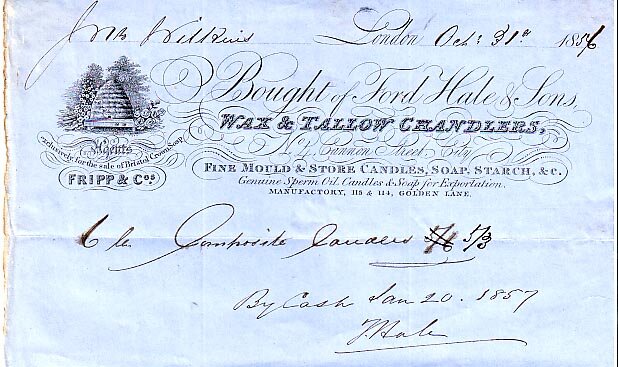 London Oct: 31st 1856
Bought of Ford Hale & Sons,
WAX & TALLOW CHANDLERS,
Cannon Street, City
Agents
exclusively for the sale of Bristol Crown Soap
FRIPP & Cos.
FINE MOULD & STORE CANDLES, SOAP, STARCH, &c.
Genuine Sperm Oil, Candles & Soap for Exportation.
MANUFACTORY, 115 & 114, GOLDEN LANE.
6 lb Composite Candles 5/3
By Cash Jan 20. 1857
Hale